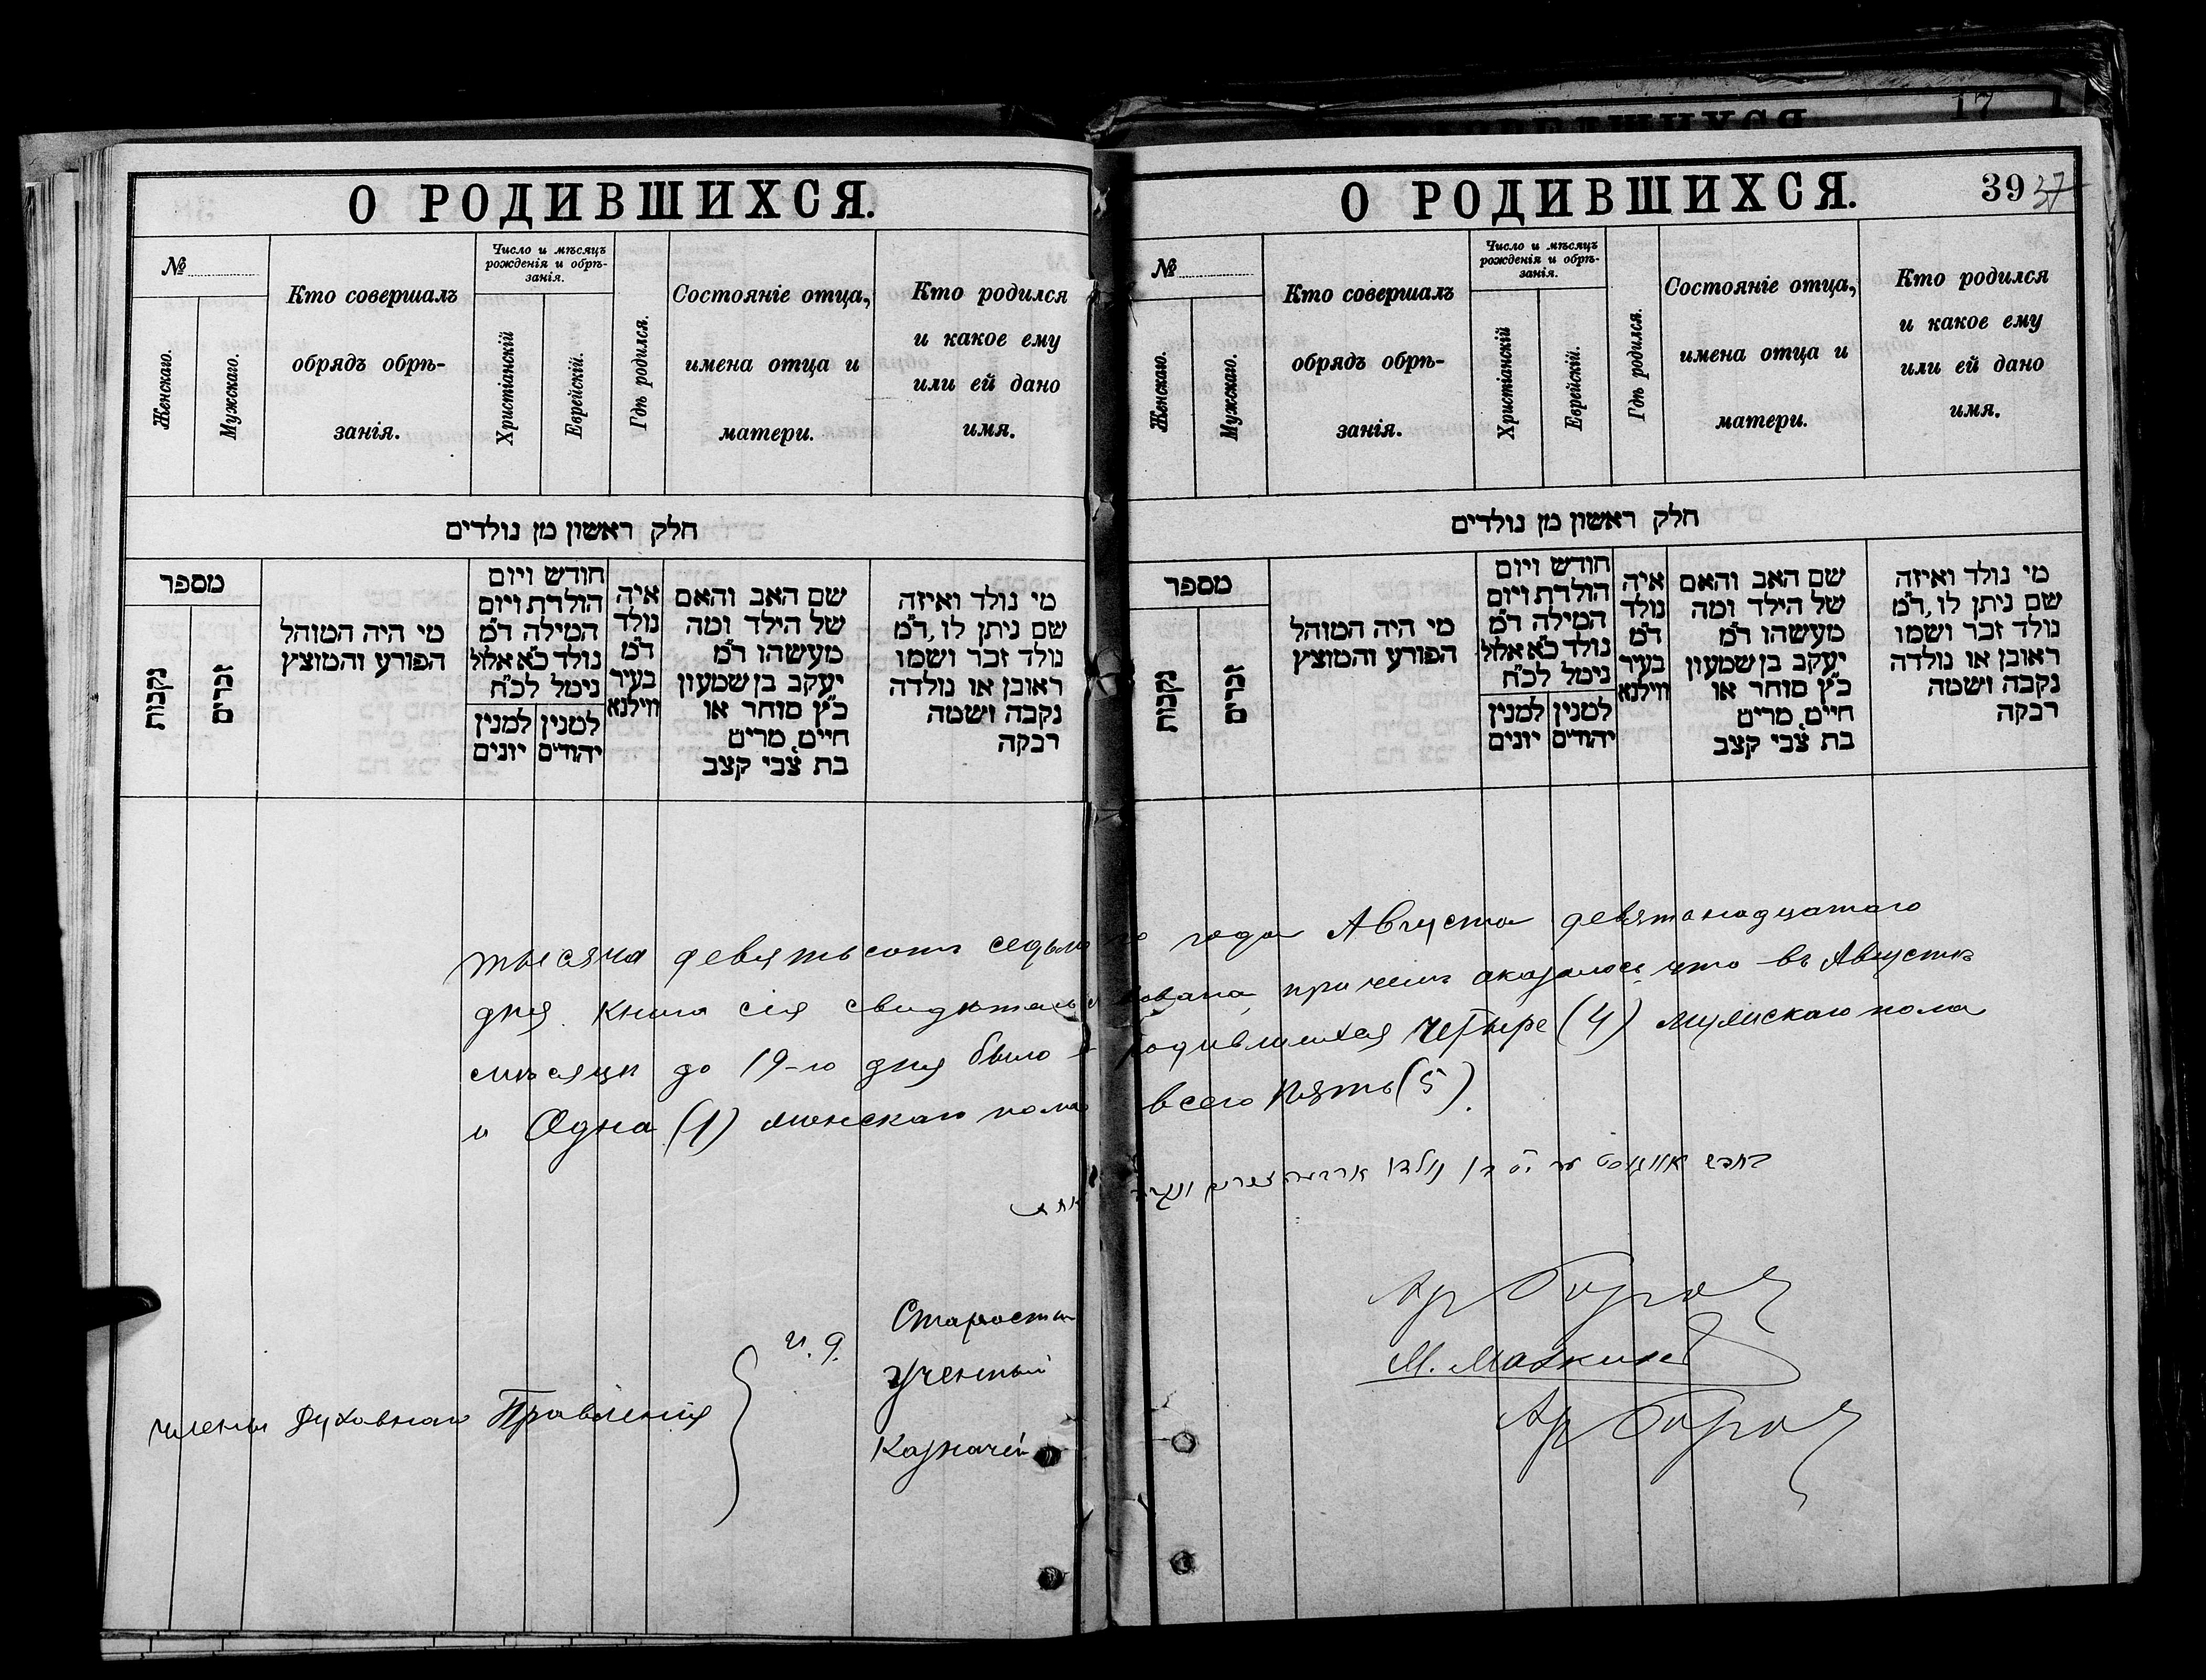 17
О РОДИВШИХСЯ.
№
Женскаго.
Мужскаго.
Кто совершалъ
обрядъ обрѣ-
занія.
Число и мѣсяцъ
рожденія и обрѣ-
занія.
Христіанскій
Еврейскій.
Гдѣ родился.
Состояніе отца,
имена отца и
матери.
Кто родился
и какое ему
или ей дано
имя.
חלק ראשון מן נולדים
מספר
נקבות
זכרים
מי היה המוהל
הפורע והמוצץ
חודש ויום
הולדת ויום
המילה ד״מ
נולד כ״א אלול
ניטל לכ״ח
למנין יהודים
למנין יונים
איה
נולד
ד״מ
בעיר
ווילנא
שם האב והאם
של הילד ומה
מעשהו ד״מ
יעקב בן שמעון
כ״ץ סוחר או
חיים, מרים
בת צבי קצב
מי נולד ואיזה
שם ניתן לו, ד״מ
נולד זכר ושמו
ראובן או נולדה
נקבה ושמה
רבקה
О РОДИВШИХСЯ.
39 37
№
Женскаго.
Мужскаго.
Кто совершалъ
обрядъ обрѣ-
занія.
Число и мѣсяцъ
рожденія и обрѣ-
занія.
Христіанскій
Еврейскій.
Гдѣ родился.
Состояніе отца,
имена отца и
матери.
Кто родился
и какое ему
или ей дано
имя.
חלק ראשון מן נולדים
מספר
נקבות
זכרים
מי היה המוהל
הפורע והמוצץ
חודש ויום
הולדת ויום
המילה ד״מ
נולד כ״א אלול
ניטל לכ״ח
למנין יהודים
למנין יונים
איה
נולד
ד״מ
בעיר
ווילנא
שם האב והאם
של הילד ומה
מעשהו ד״מ
יעקב בן שמעון
כ״ץ סוחר או
חיים, מרים
בת צבי קצב
מי נולד ואיזה
שם ניתן לו, ד״מ
נולד זכר ושמו
ראובן או נולדה
נקבה ושמה
רבקה
тысяча девятьсотъ седьмого года Августа девятонадцатаго
дня. Книга сія свидѣтельствована, при чемъ оказалось, что въ Августѣ
мѣсяцѣ до 19-го дня было родившихся Четыре (4) мужскаго пола
и Одна (1) женскаго пола всего Пять (5).
Члены Духовнаго Правленія
и. д.
Староста
Ученый М. Мазкинъ
Казначей